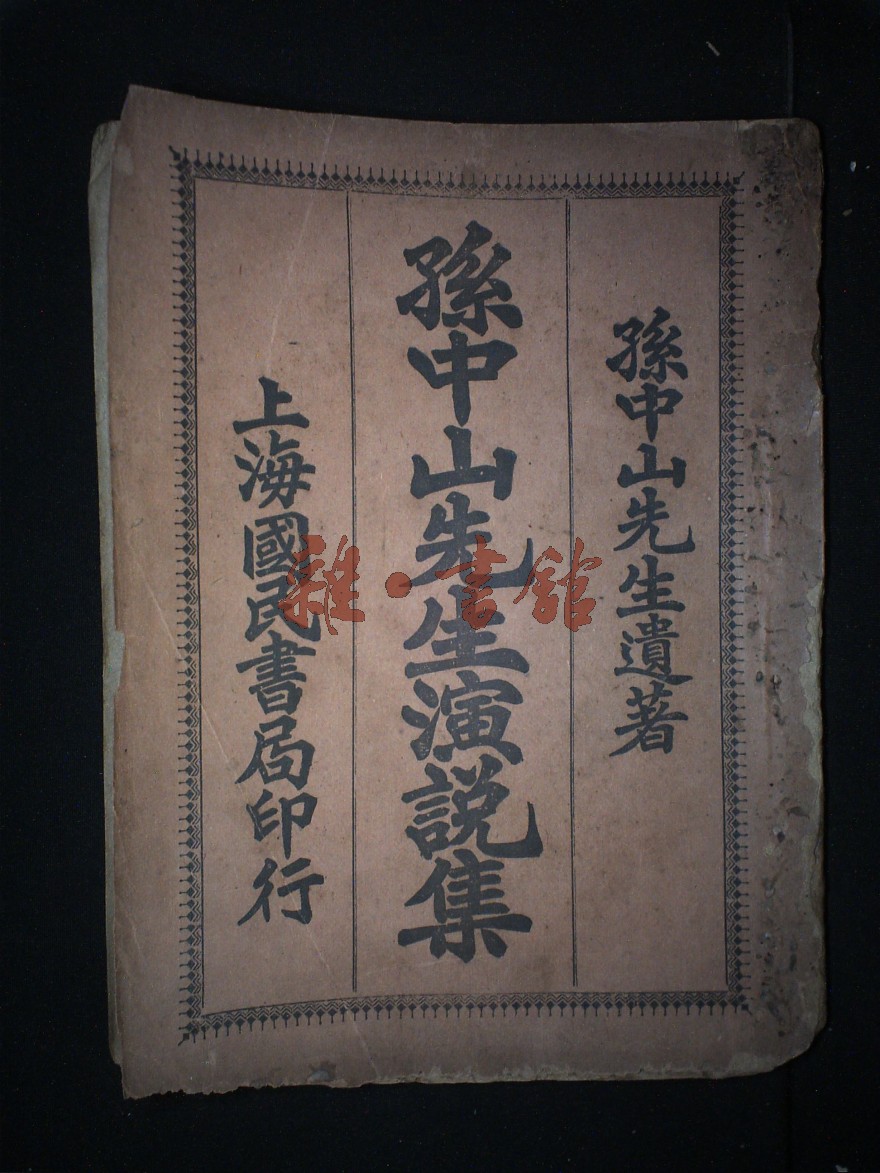 孫中山先生遺著
孫中山先生演説集
上海國民書局印行
雜·書館